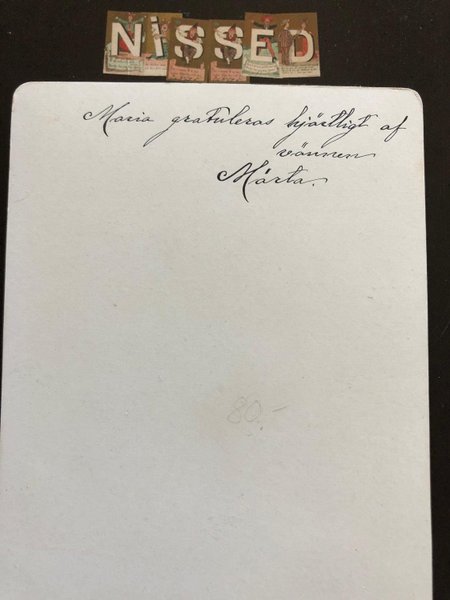 NiSSED
Maria gratuleras hjärtligt af
vännen
Märta.
80.-